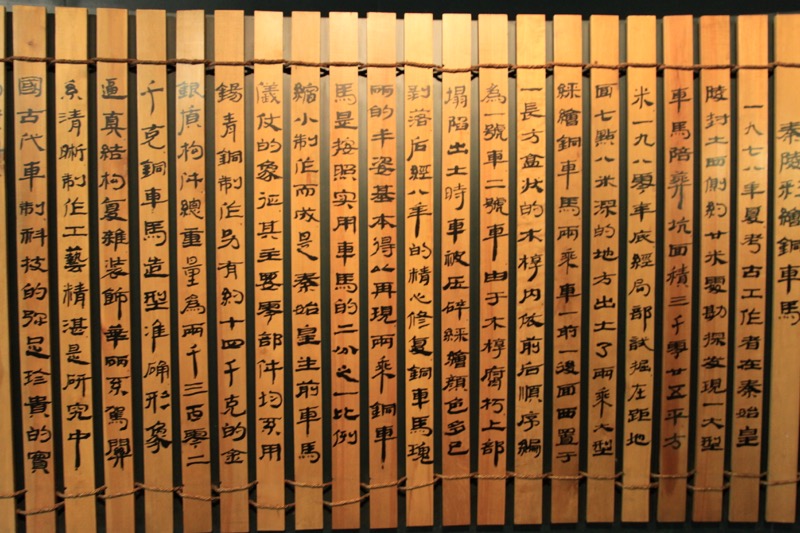 秦陵彩繪銅車馬
一九七八年夏考古工作者在秦始皇
陵封土西側約廿米處勘探发現一大型
車馬陪葬坑面積三千零廿五平方
米一九八零年底經局部試掘在距地
面七點八米深的地方出土了兩乘大型
綵繪銅車馬兩乘車一前一後面西置于
一長方盒状的木椁内依前后順序編
為一號車二號車由于木椁腐朽上部
塌陷出土時車被压碎綵繪顔色多已
剥落后經八年的精心修复銅車馬瑰
丽的丰姿基本得以再現兩乘銅車
馬是按照实用車馬的二分之一比例
縮小制作而成是秦始皇生前車馬
儀仗的象征其主要零部件均系用
錫青銅制作另有約十四千克的金
銀質构件總重量為兩千三百零二
千克銅車馬造型准确形象
逼真結构复雜装飾華丽系駕關
系清晰制作工藝精湛是研究中
國古代車制科技的弥足珍貴的實